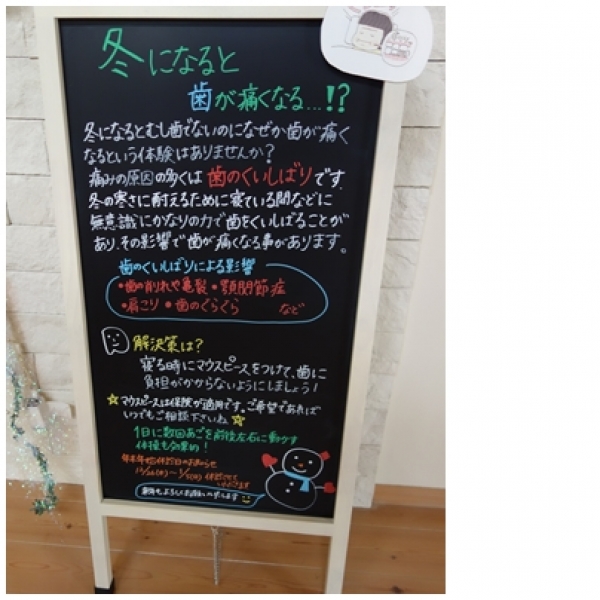 冬になると
歯が痛くなる…!?
冬になるとむし歯でないのになぜか歯が痛く
なるという体験はありませんか?
痛みの原因の多くは歯のくいしばりです.
冬の寒さに耐えるために寝ている間などに
無意識にかなりの力で歯をくいしばることが
あり、その影響で歯が痛くなる事があります。
歯のくいしばりによる影響
•歯の削りれや亀裂 •顎関節症
•肩こり •歯のぐらぐら など
解決策は?
寝る時にマウスピースをつけて、歯に
負担がかからないようにしましょう!
☆マウスピースは保険が適用です。ご希望であれば
いつでもご相談下さいね☆
1日に数回あごを前後左右に動かす
体操も効果的!
年末年始休診日のお知らせ